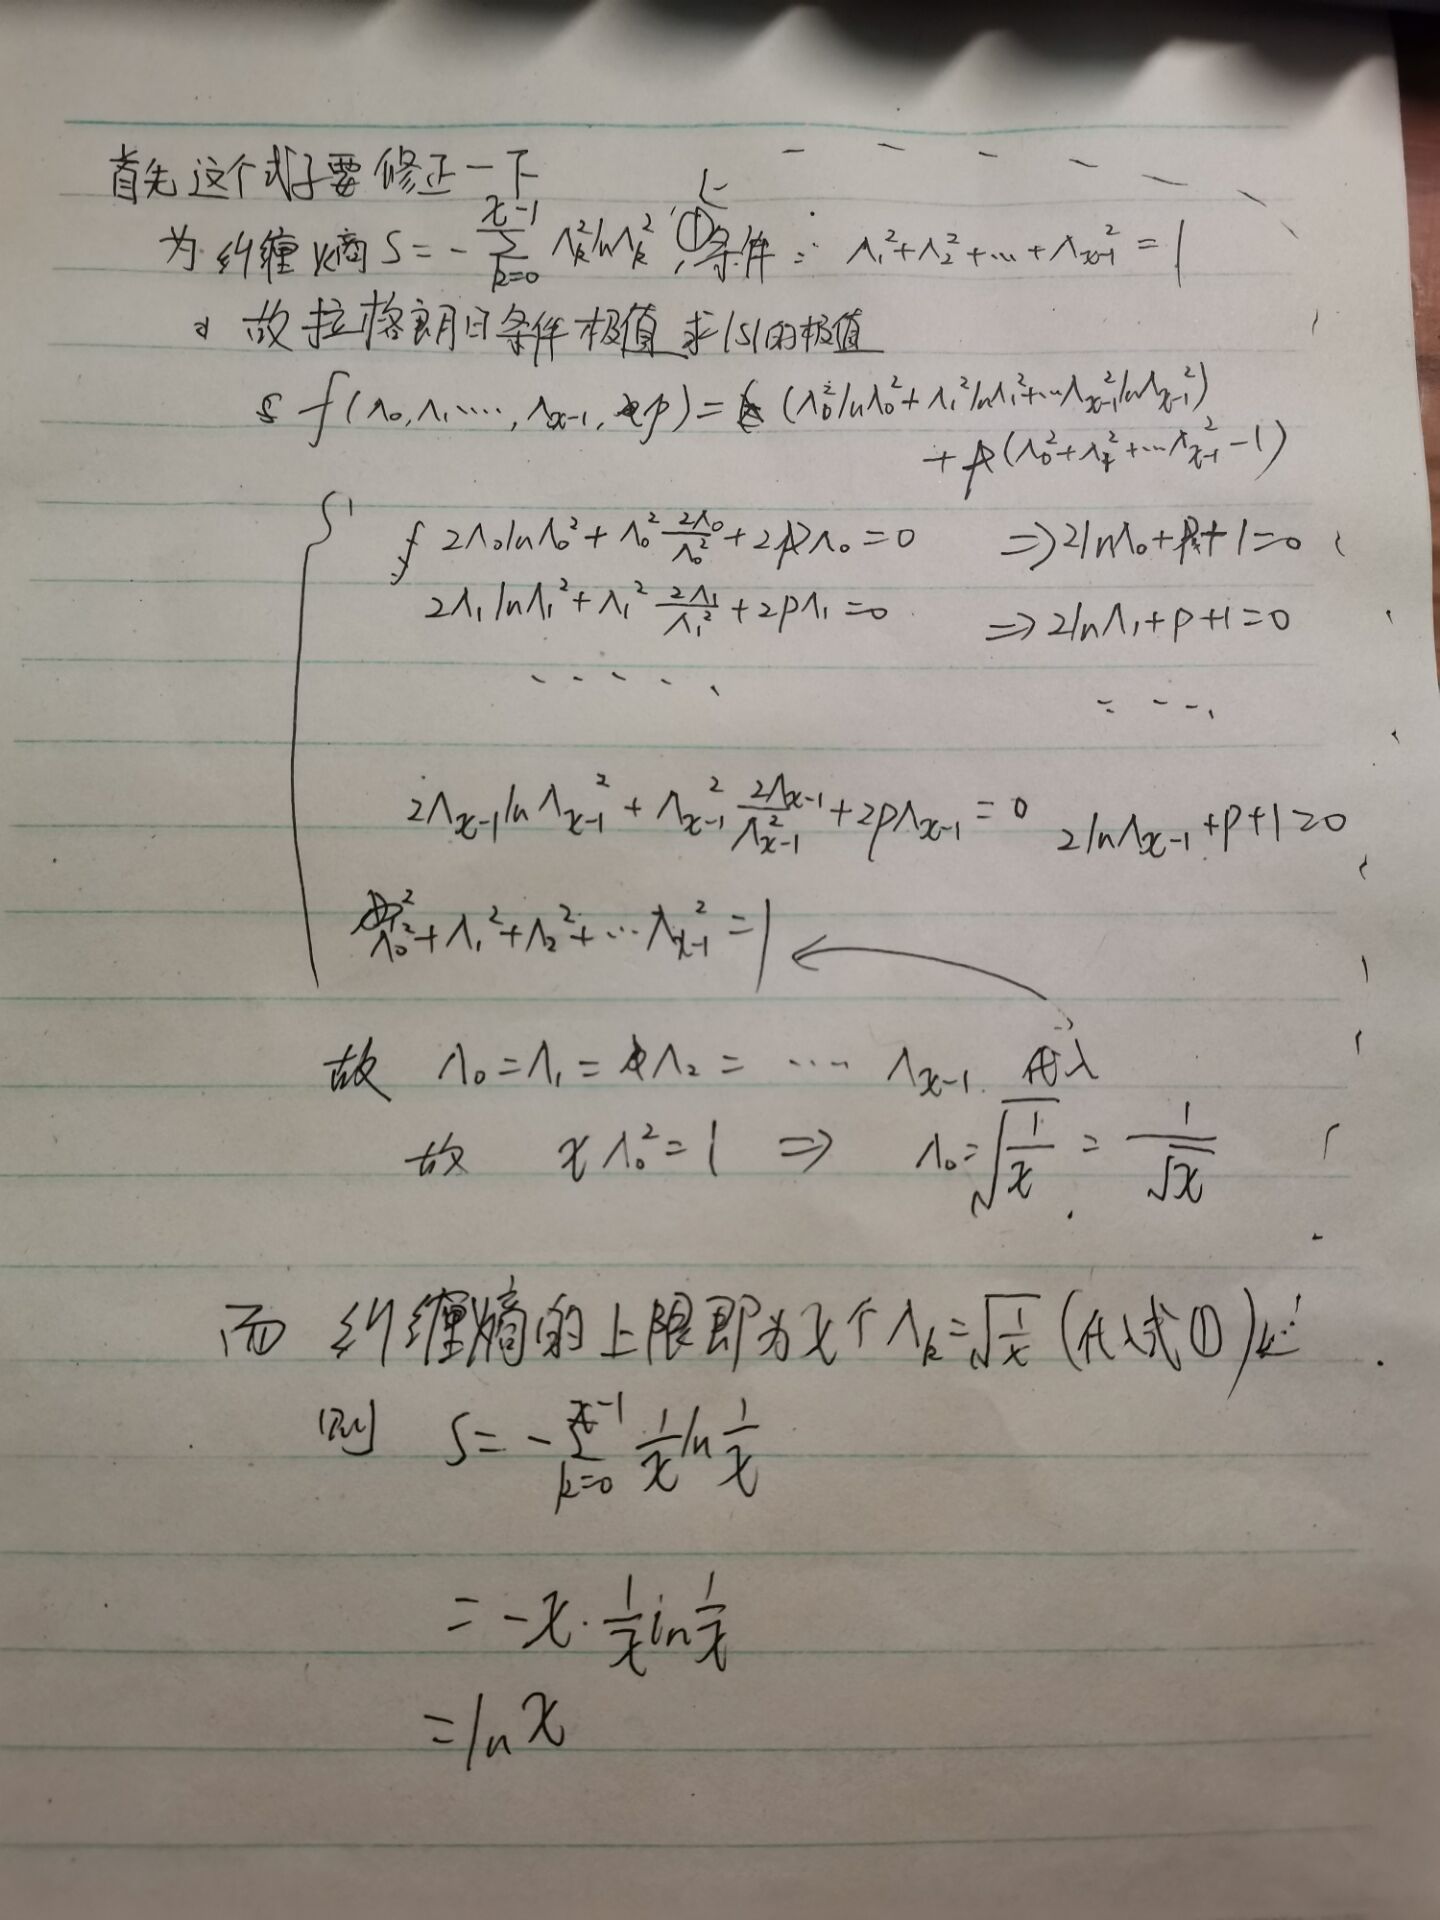 首先这个式子要修正一下
为纠缠熵 S = -∑_{k=0}^{χ-1} Λ_k² ln Λ_k², ① 条件: Λ_1² + Λ_2² + … + Λ_{χ-1}² = 1
故拉格朗日条件极值 求|S|的极值
f(Λ_0, Λ_1 …, Λ_{χ-1}, p) = (Λ_0² ln Λ_0² + Λ_1² ln Λ_1² + … Λ_{χ-1}² ln Λ_{χ-1}²)
+ p(Λ_0² + Λ_1² + … Λ_{χ-1}² - 1)
2Λ_0 ln Λ_0² + Λ_0² \frac{2Λ_0}{Λ_0²} + 2pΛ_0 = 0 ⇒ 2 ln Λ_0 + p + 1 = 0
2Λ_1 ln Λ_1² + Λ_1² \frac{2Λ_1}{Λ_1²} + 2pΛ_1 = 0 ⇒ 2 ln Λ_1 + p + 1 = 0
…… ……
2Λ_{χ-1} ln Λ_{χ-1}² + Λ_{χ-1}² \frac{2Λ_{χ-1}}{Λ_{χ-1}²} + 2pΛ_{χ-1} = 0 2 ln Λ_{χ-1} + p + 1 = 0
Λ_0² + Λ_1² + Λ_2² + … Λ_{χ-1}² = 1
故 Λ_0 = Λ_1 = Λ_2 = …… Λ_{χ-1} 代入
故 χΛ_0² = 1 ⇒ Λ_0 = \sqrt{\frac{1}{χ}} = \frac{1}{\sqrt{χ}}
而纠缠熵的上限即为χ个Λ_k = \sqrt{\frac{1}{χ}} (代入式①)
则 S = -∑_{k=0}^{χ-1} \frac{1}{χ} ln \frac{1}{χ}
= -χ · \frac{1}{χ} ln \frac{1}{χ}
= ln χ